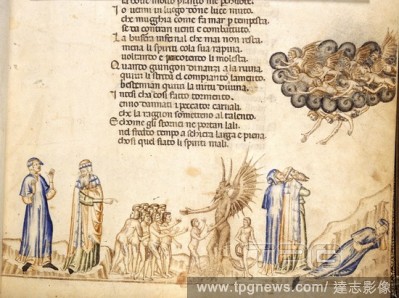 to cose molto pianto me percuote.
Io venni in luogo d'one luce muto.
che mugghia come fa mar p tempesta.
se da contrari venti e combattuto
La bufera infernal che mai non resta
mena li spiriti cola sua rapina.
voltanto e percotento li molesta.
Quanto giungon dinanzi a la ruina.
quivi li strida el compianto lamento.
bestemian quivi la virtu divina.
Intesi cha cosi fatto tormento.
enno dannati i peccator carnali.
che la raggion sometteno al talento.
E chome gli stornei ne portan lali.
nel freddo tempo a schiera larga e piena
chosi quel fiato li spiriti mali.
www.tpgnews.com/ 達志影像